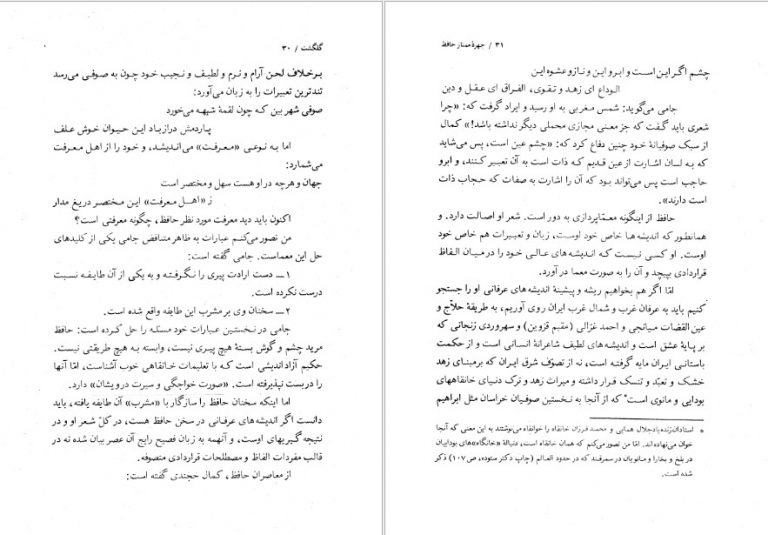 گلگشت / ۳۰
برخلاف لحن آرام و نرم و لطیف و نجیب خود چون به صوفی می‌رسد
تندترین تعبیرات را به زبان می‌آورد:
صوفی شهر بین که چون لقمهٔ شبهه می‌خورد
پاردمش دراز باد این حیوان خوش علف
اما به نوعی «معرفت» می‌اندیشد، و خود را از اهل معرفت
می‌شمارد:
جهان و هرچه در او هست سهل و مختصر است
ز «اهل معرفت» این مختصر دریغ مدار
اکنون باید دید معرفت مورد نظر حافظ، چگونه معرفتی است؟
من تصور می‌کنم عبارات به ظاهر متناقض جامی یکی از کلیدهای
حل این معماست. جامی گفته است:
۱ــ دست ارادت پیری را نگرفته و به یکی از آن طایفه نسبت
درست نکرده است.
۲ــ سخنان وی بر مشرب این طایفه واقع شده است.
جامی در نخستین عبارات خود مسئله را حل کرده است: حافظ
مرید چشم و گوش بستهٔ هیچ پیری نیست، وابسته به هیچ طریقتی نیست.
حکیم آزاداندیشی است که با تعلیمات خانقاهی خوب آشناست، امّا آنها
را دربست نپذیرفته است. «صورت خواجگی و سیرت درویشان» دارد.
اما اینکه سخنان حافظ را سازگار با «مشرب» آن طایفه یافته، باید
دانست اگر اندیشه‌های عرفانی در سخن حافظ هست، در کلّ شعر او و در
نتیجه گیریهای اوست، و آنهمه به زبان فصیح رایج آن عصر بیان شده نه در
قالب مفردات الفاظ و مصطلحات قراردادی متصوفه.
از معاصران حافظ، کمال خجندی گفته است:
۳۱ / چهرهٔ ممتاز حافظ
چشم اگر این است و ابرو این و ناز و عشوه این
الوداع ای زهد و تقوی، الفراق ای عقل و دین
جامی می‌گوید: شمس مغربی به او رسید و ایراد گرفت که: «چرا
شعری باید گفت که جز معنی مجازی محملی دیگر نداشته باشد!» کمال
از سبک صوفیانهٔ خود چنین دفاع کرد که: «چشم عین است، پس می‌شاید
که به لسان اشارت از عین قدیم که ذات است به آن تعبیر کنند، و ابرو
حاجب است پس می‌تواند بود که آن را اشارت به صفات که حجاب ذات
است دارند».
حافظ از اینگونه معمّاپردازی به دور است. شعر او اصالت دارد. و
همانطور که اندیشه‌ها خاص خود اوست، زبان و تعبیرات هم خاص خود
اوست. او کسی نیست که اندیشه‌های عالی خود را در میان الفاظ
قراردادی بپیچد و آن را به صورت معما در آورد.
امّا اگر هم بخواهیم ریشه و پیشینهٔ اندیشه‌های عرفانی او را جستجو
کنیم باید به عرفان غرب و شمال غرب ایران روی آوریم، به طریقهٔ حلاّج و
عین القضات میانجی و احمد غزالی (مقیم قزوین) و سهروردی زنجانی که
بر پایهٔ عشق است و اندیشه‌های لطیف شاعرانهٔ انسانی است و از حکمت
باستانی ایران مایه گرفته است، نه از تصوّف شرق ایران که برمبنای زهد
خشک و تعبّد و تنسک قرار داشته و میراث زهد و ترک دنیای خانقاههای
بودایی و مانوی است* که از آنجا به نخستین صوفیان خراسان مثل ابراهیم
* استادان زنده‌یاد جلال همایی و محمد فرزان خانقاه را خوانقاه می‌نوشتند به این معنی که آنجا
خوان می‌نهاده‌اند. امّا من تصور می‌کنم که همان خانقاه است، دنبالهٔ «خانگاه»های بوداییان
در بلخ و بخارا و مانویان در سمرقند که در حدود العالم (چاپ دکتر ستوده، ص ۱۰۷) ذکر
شده است.